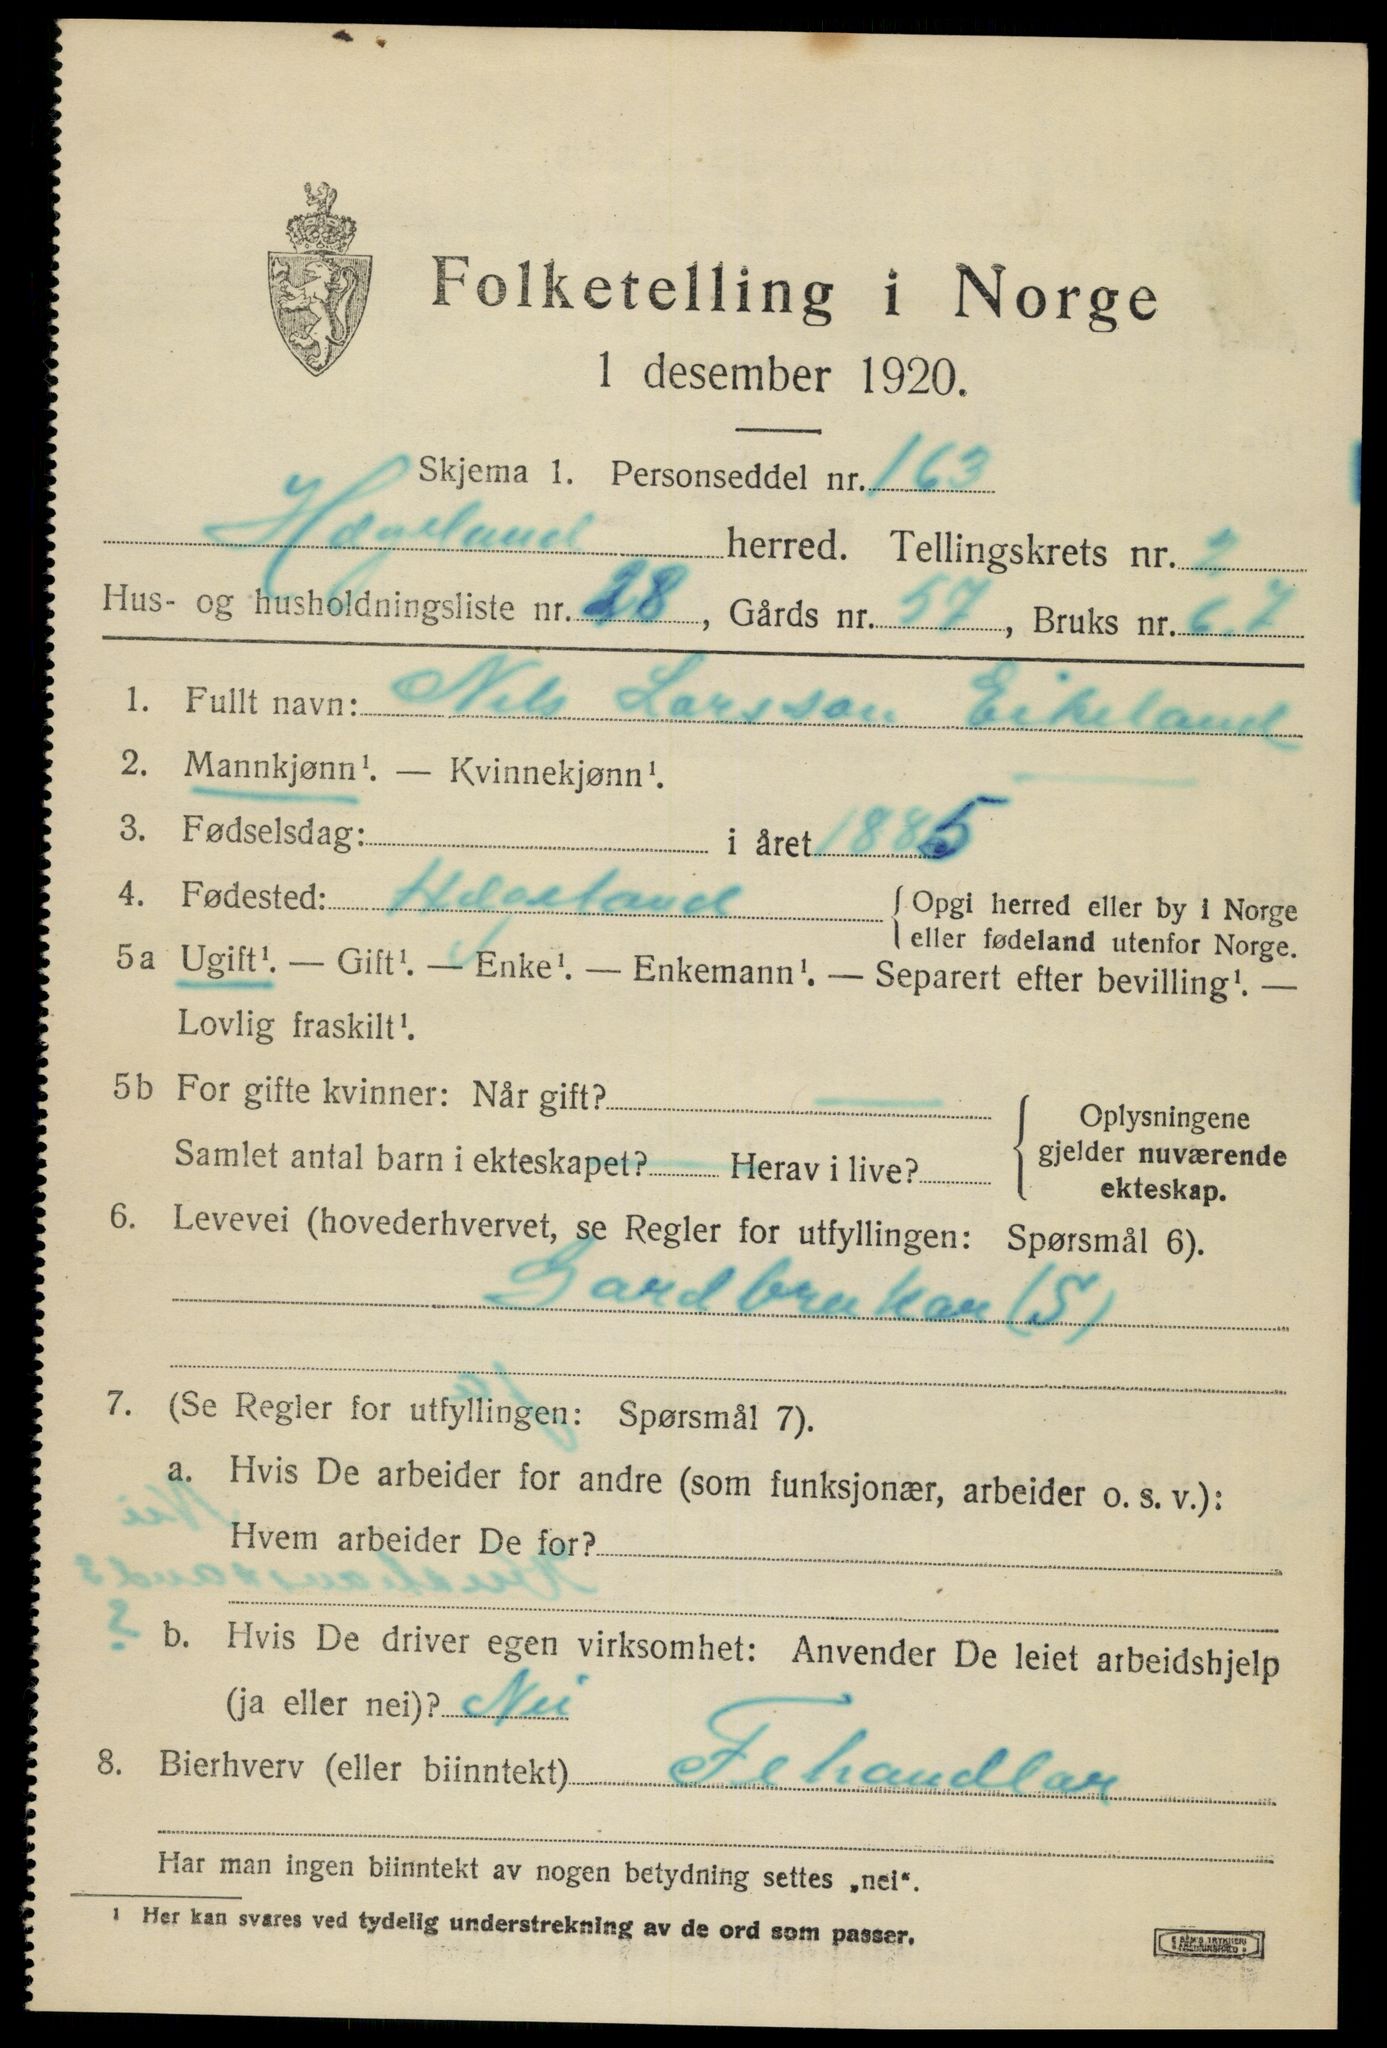 Folketelling i Norge
1 desember 1920.
Skjema 1. Personseddel nr. 163
Hægeland herred. Tellingskrets nr. 2
Hus- og husholdningsliste nr. 28, Gårds nr. 57, Bruks nr. 6.7
1. Fullt navn: Nils Larsson Eikeland
2. Mannkjønn¹. — Kvinnekjønn¹.
3. Fødselsdag: i året 1885
4. Fødested: Hægeland { Opgi herred eller by i Norge
eller fødeland utenfor Norge.
5a Ugift¹. — Gift¹. — Enke¹. — Enkemann¹. — Separert efter bevilling¹. —
Lovlig fraskilt¹.
5b For gifte kvinner: Når gift?
Samlet antal barn i ekteskapet? Herav i live?
{ Oplysningene
gjelder nuværende
ekteskap.
6. Levevei (hovederhvervet, se Regler for utfyllingen: Spørsmål 6).
Gardbrukar (S)
7. (Se Regler for utfyllingen: Spørsmål 7).
a. Hvis De arbeider for andre (som funksjonær, arbeider o. s. v.):
Hvem arbeider De for?
b. Hvis De driver egen virksomhet: Anvender De leiet arbeidshjelp
(ja eller nei)? Nei
8. Bierhverv (eller biinntekt) Fehandlar
Har man ingen biinntekt av nogen betydning settes „nei“.
¹ Her kan svares ved tydelig understrekning av de ord som passer.